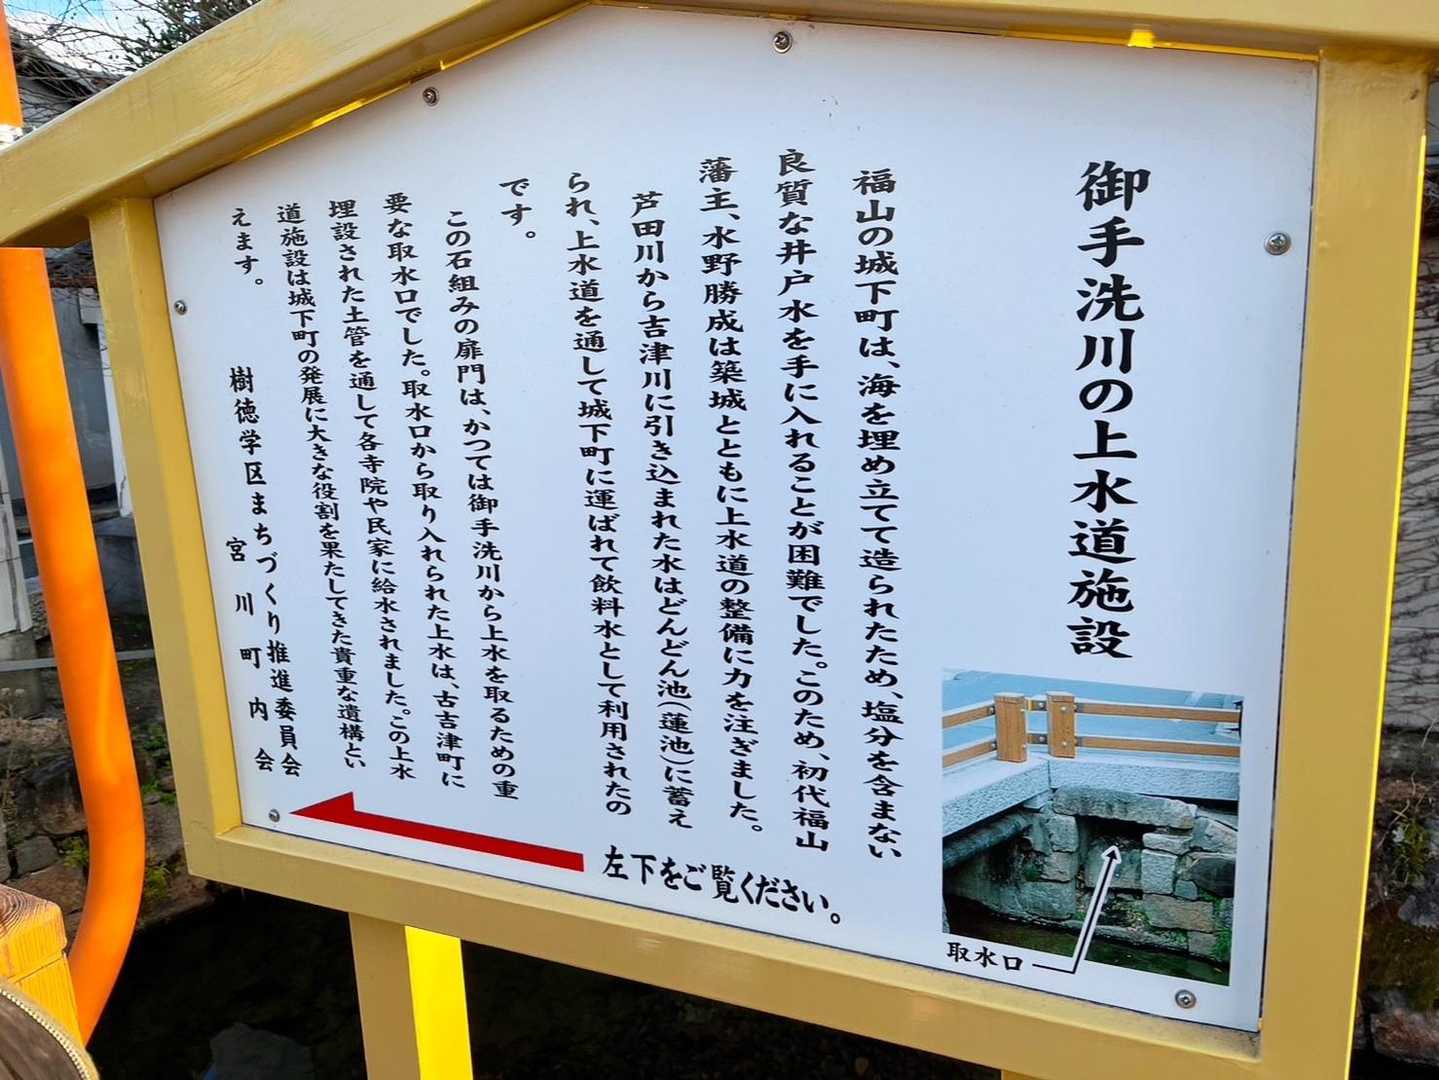 御手洗川の上水道施設
福山の城下町は、海を埋め立てて造られたため、塩分を含まない
良質な井戸水を手に入れることが困難でした。このため、初代福山
藩主、水野勝成は築城とともに上水道の整備に力を注ぎました。
芦田川から吉津川に引き込まれた水はどんどん池(蓮池)に蓄え
られ、上水道を通して城下町に運ばれて飲料水として利用されたの
です。
この石組みの扉門は、かつては御手洗川から上水を取るための重
要な取水口でした。取水口から取り入れられた上水は、古吉津町に
埋設された土管を通して各寺院や民家に給水されました。この上水
道施設は城下町の発展に大きな役割を果たしてきた貴重な遺構とい
えます。
樹徳学区まちづくり推進委員会
宮川町内会
左下をご覧ください。
取水口